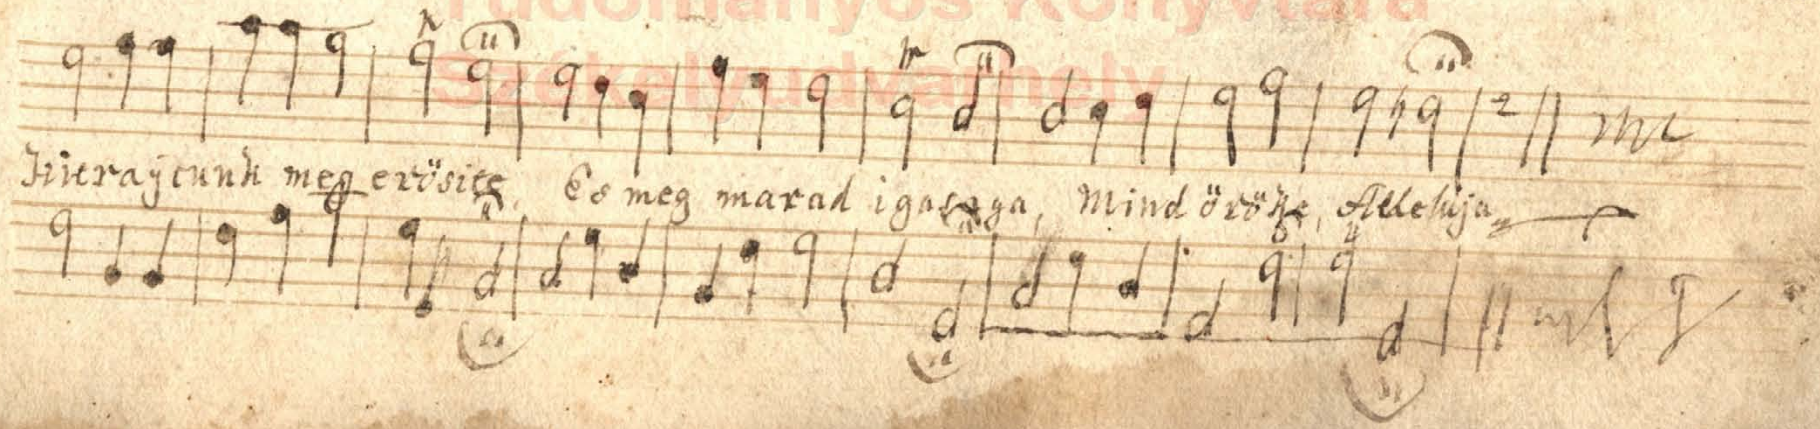 Tudományos Könyvtára
Székelyudvarhely
meg erösite, Es meg marad igasaga, Mind örökke, Alleluja